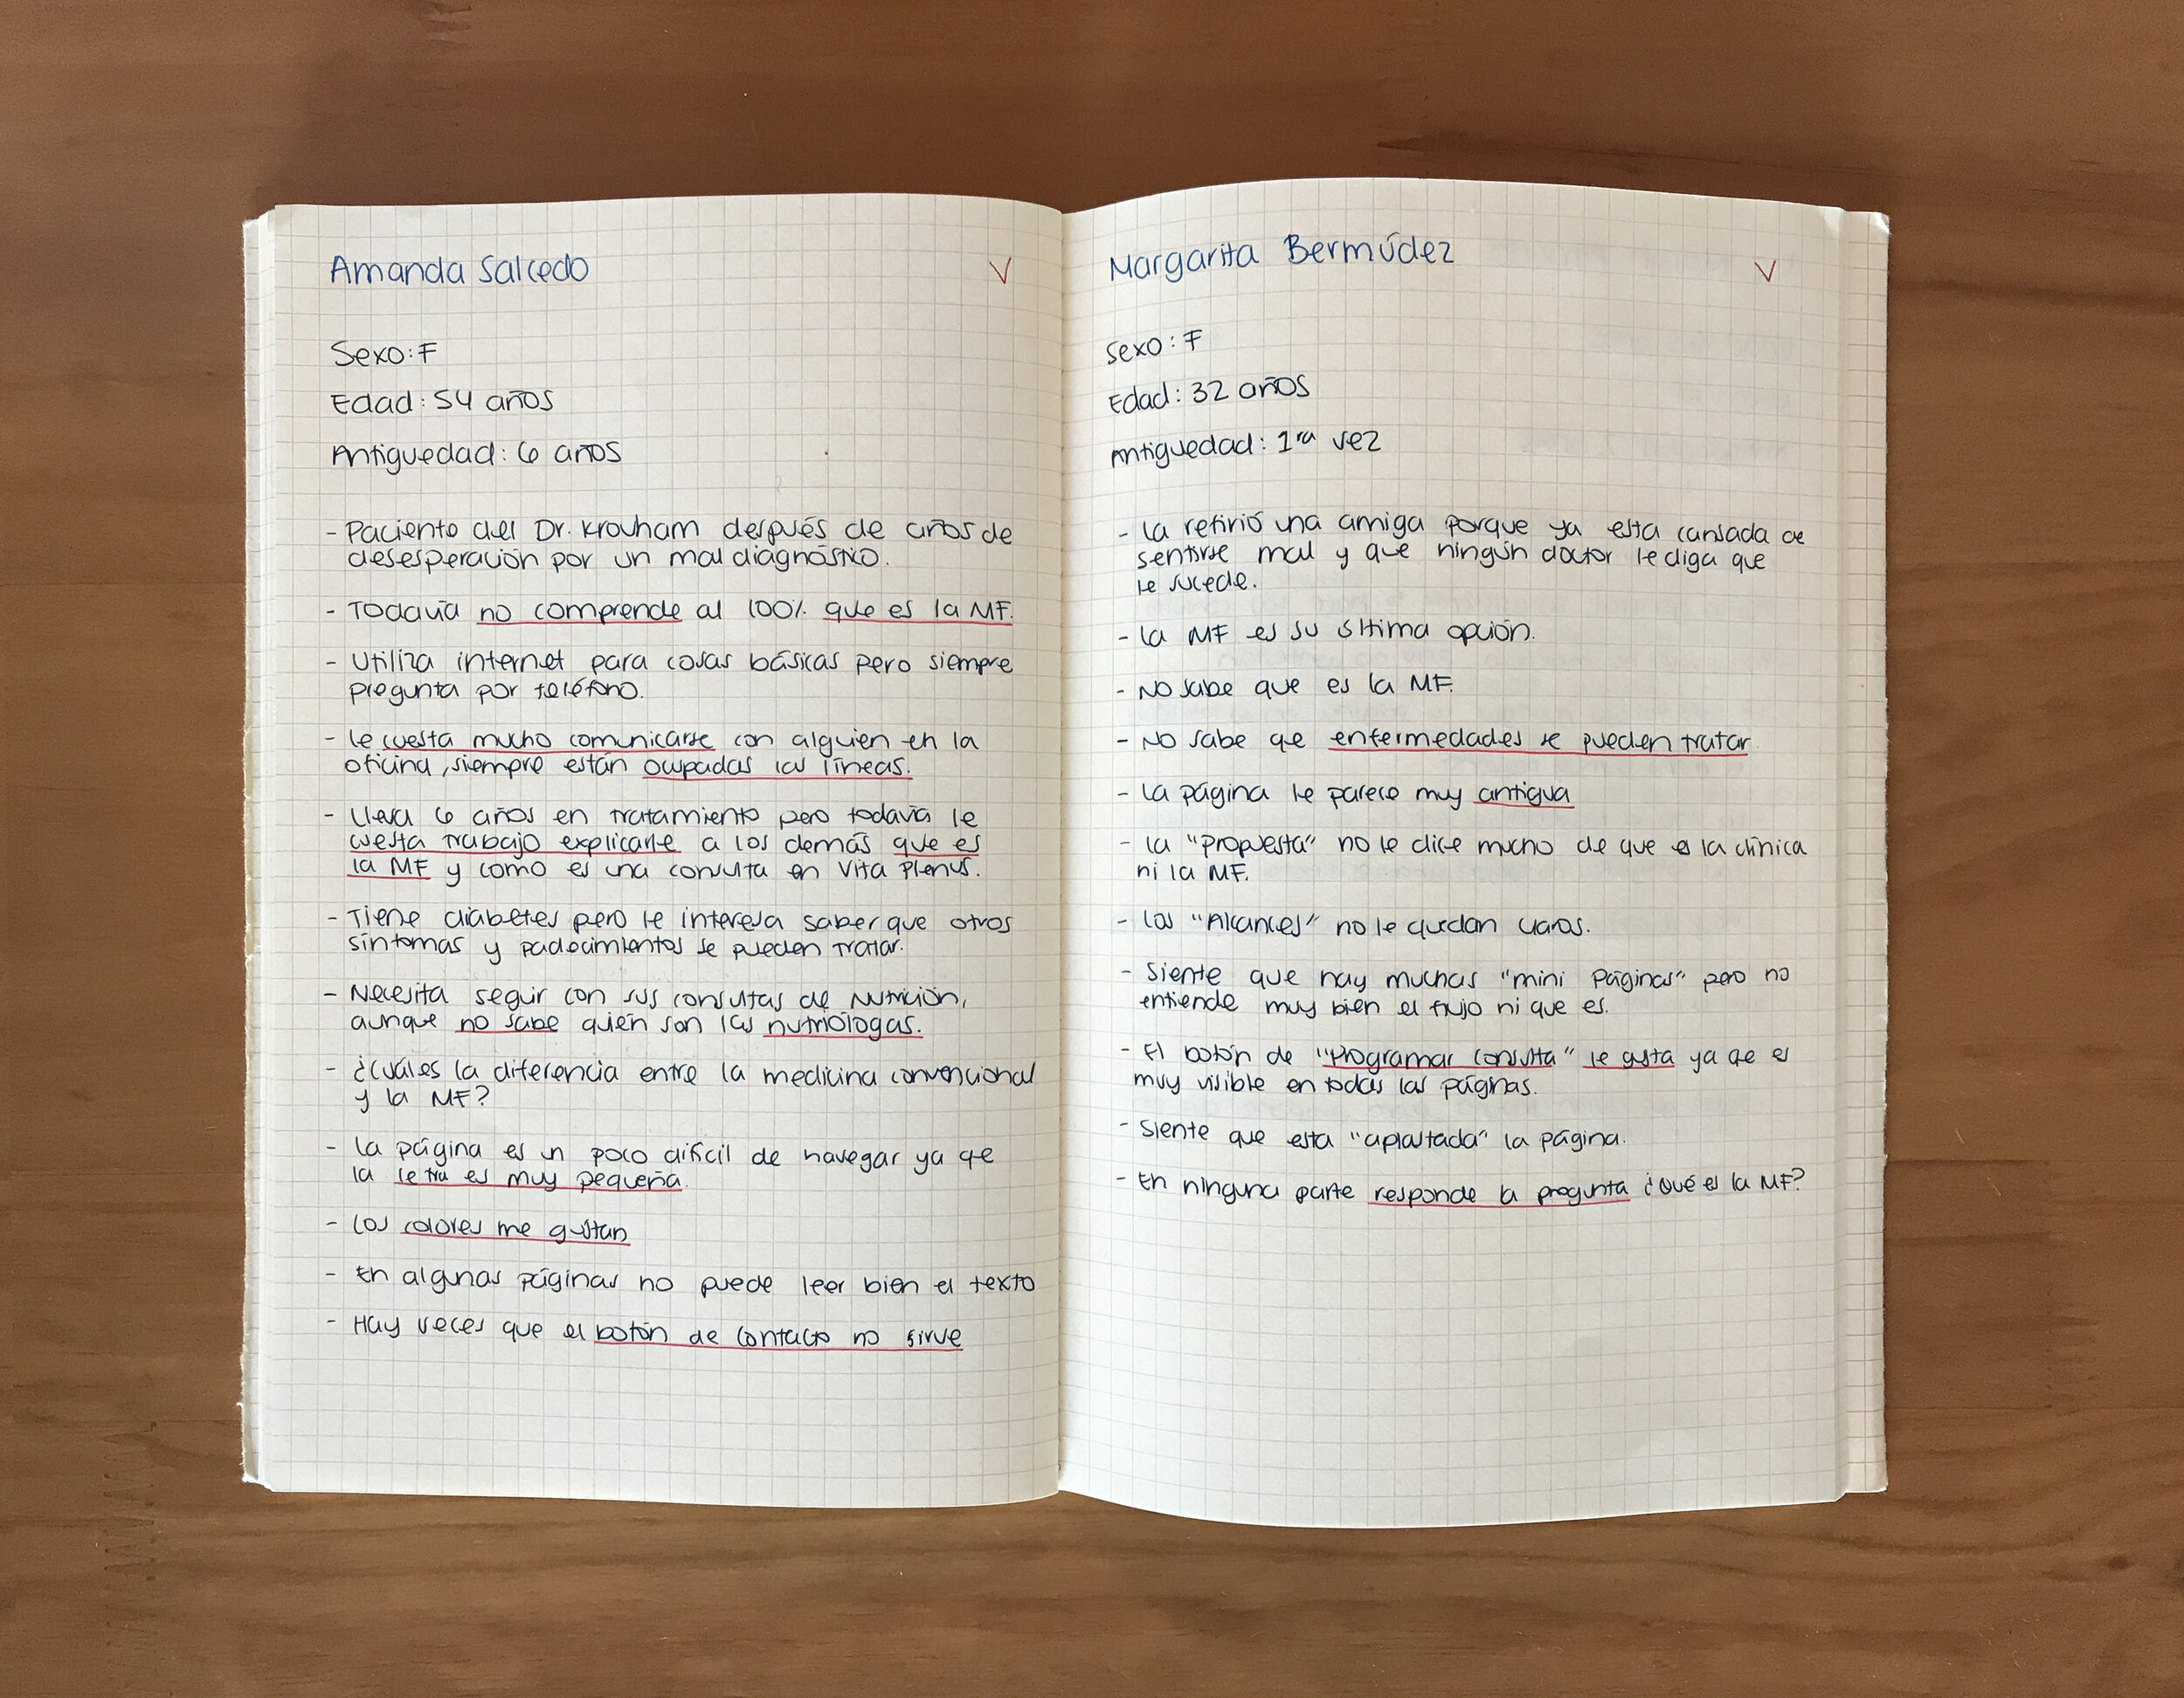 Amanda Salcedo V
Sexo: F
Edad: 54 años
Antiguedad: 6 años
- Paciente del Dr. Krouham después de años de
desesperación por un mal diagnóstico.
- Todavía no comprende al 100% que es la MF.
- Utiliza internet para cosas básicas pero siempre
pregunta por teléfono.
- le cuesta mucho comunicarse con alguien en la
oficina, siempre están ocupadas las líneas.
- Lleva 6 años en tratamiento pero todavía le
cuesta trabajo explicarle a los demás que es
la MF y como es una consulta en Vita Plenus.
- Tiene diabetes pero le interesa saber que otros
síntomas y padecimientos se pueden tratar.
- Necesita seguir con sus consultas de Nutrición,
aunque no sabe quién son las nutriólogas.
- ¿Cuál es la diferencia entre la medicina convencional
y la MF?
- La página es un poco difícil de navegar ya qe
la letra es muy pequeña.
- Los colores me gustan
- En algunas páginas no puede leer bien el texto
- Hay veces que el botón de contacto no sirve
Margarita Bermúdez V
Sexo: F
Edad: 32 años
Antiguedad: 1ra vez
- La refirió una amiga porque ya esta cansada de
sentirse mal y que ningún doctor le diga que
le sucede.
- La MF es su última opción.
- No sabe que es la MF.
- No sabe qe enfermedades se pueden tratar
- La página le parece muy antigua
- La "Propuesta" no le dice mucho de que es la clínica
ni la MF.
- Los "Alcances" no le quedan claros.
- Siente que hay muchas "mini páginas" pero no
entiende muy bien el flujo ni que es.
- El botón de "Programar consulta" le gusta ya qe es
muy visible en todas las páginas.
- Siente que esta "aplastada" la página.
- En ninguna parte responde la pregunta ¿Qué es la MF?